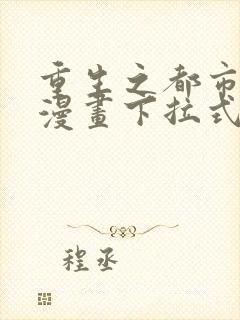 重生之都市
漫畫下拉式
程丞